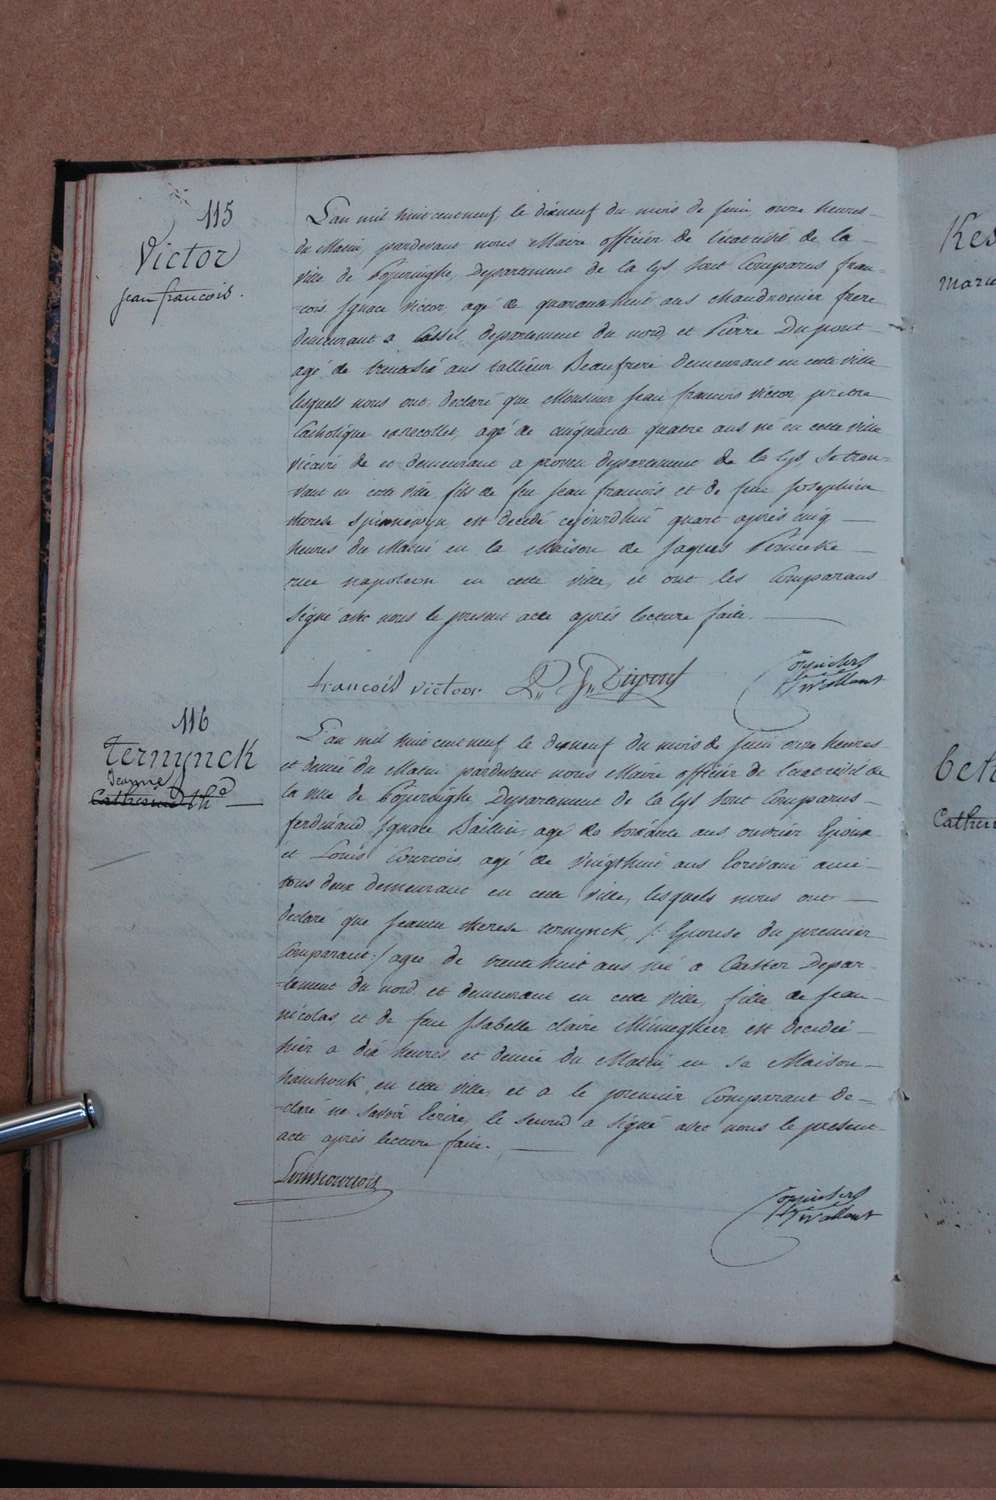 115
Victor
jean francois.
L'an mil huit cent neuf, le dixneuf du mois de juin onze heures
du Matin pardevant nous Maire officier de l'etat civil de la
ville de Poperinghe, Departement de la Lys sont Comparus fran-
-cois Ignace Victor, agé de quarante huit ans chaudronier frere
demeurant a Cassel, departement du nord, et Pierre Dupont
agé de trente six ans tallieur Beaufrere demeurant en cette ville
lesquels nous ont declaré que Monsieur jean francois Victor, pretre
Catholique exrecollet, agé de cinquante quatre ans né en cette ville
vicaire de et demeurant a proven departement de la Lys, se trou-
vant en cette ville, fils de feu jean francois et de feue Josephine
therese Spinnewyn, est decedé cejourdhui quart après cinq
heures du Matin en la Maison de Jaques
rue napoleon en cette ville, et ont les Comparans
signé avec nous le present acte après lecture faite.
francois victor P. J. Dupont
116
Ternynck
Jeanne
Catherine Th.e
L'an mil huit cent neuf le dixneuf du mois de juin onze heures
et demie du Matin pardevant nous Maire officier de l'etat civil de
la ville de Poperinghe Departement de la Lys sont Comparus
ferdinand Ignace agé de ans ouvrier Epoux
et Louis Courtois, agé de vingthuit ans Ecrivain ami
tous deux demeurant en cette ville, lesquels nous ont
declaré que Jeanne therese ternynck, /: Epouse du premier
Comparant :/ agée de trente huit ans né a Caester Depar-
-tement du nord, et demeurant en cette ville, fille de Jean
nicolas et de feue Isabelle claire est decedée
hier a dix heures et demie du Matin, en sa Maison
en cette ville, et a le premier Comparant de-
-claré ne savoir Ecrire, le second a signé avec nous le present
acte après lecture faite.
Louis Courtois
Kes
Marie
beh
Catherin